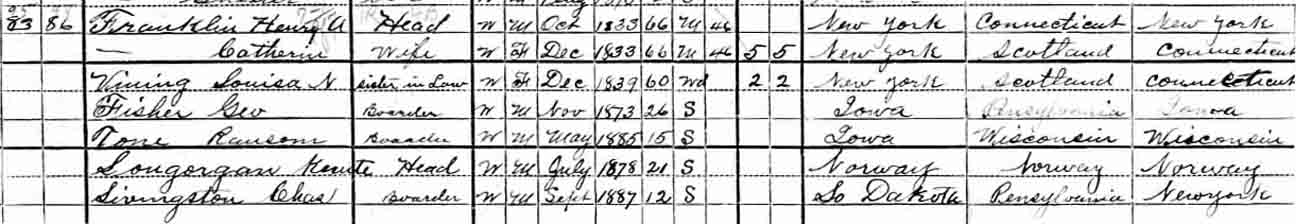 83 86 Franklin Henry A Head W M Oct 1833 66 M 46 New York Connecticut New York
— Catherin Wife W F Dec 1833 66 M 46 5 5 New York Scotland Connecticut
Vining Louisa N sister in Law W F Dec 1839 60 Wd 2 2 New York Scotland Connecticut
Fisher Geo Boarder W M Nov 1873 26 S Iowa Pensylvania Iowa
Tone Ransom Boarder W M May 1885 15 S Iowa Wisconsin Wisconsin
Head W M July 1878 21 S Norway Norway Norway
Livingston Chas Boarder W M Sept 1887 12 S So Dakota Pensylvania Newyork